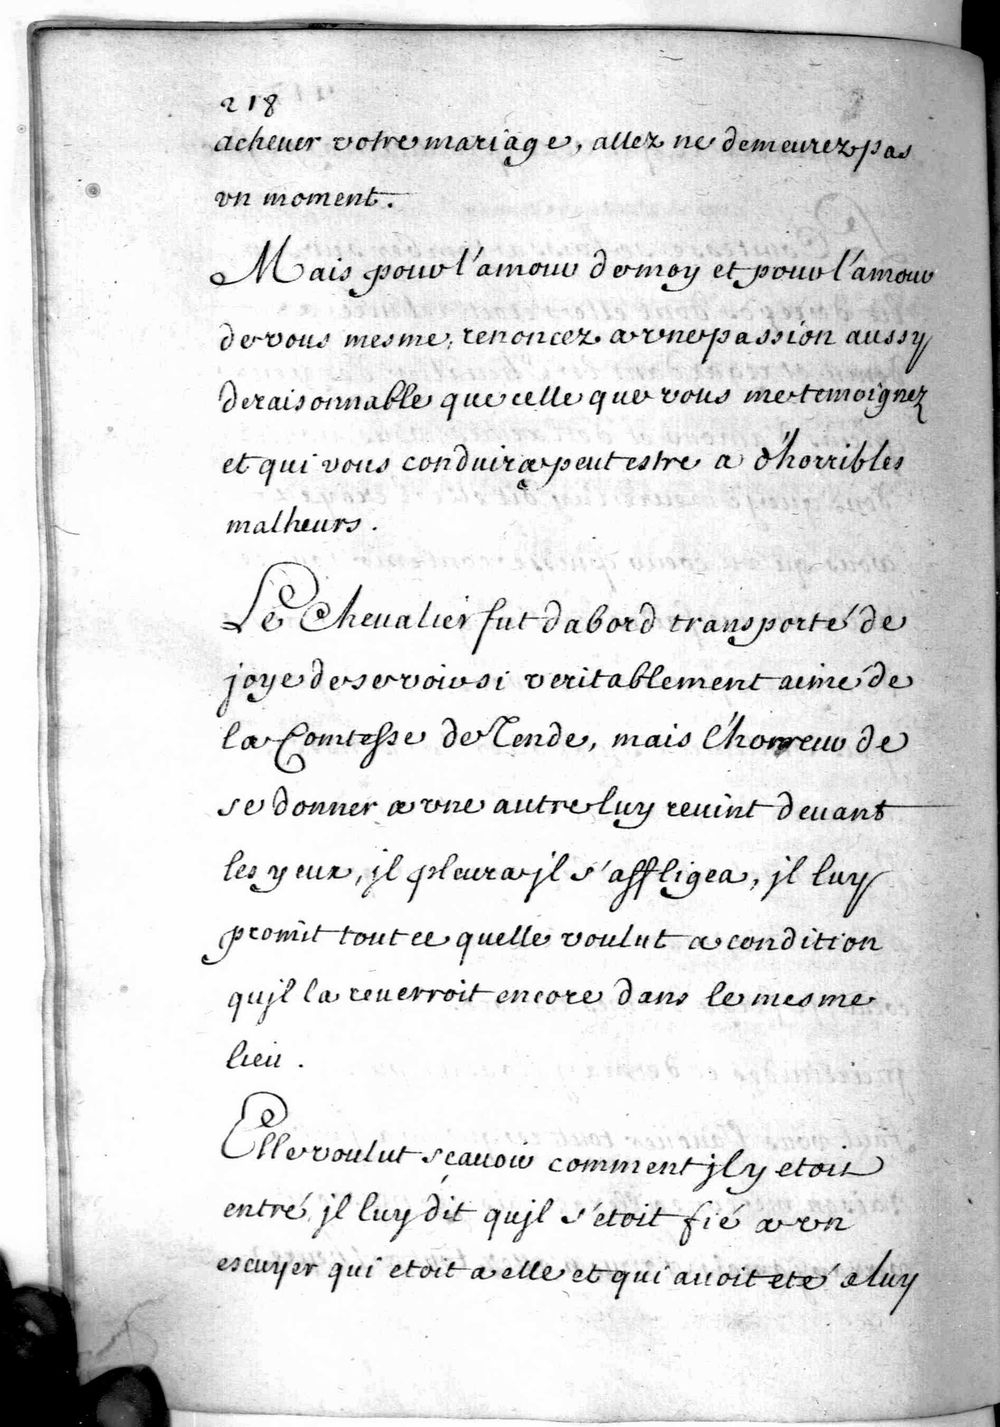 218
acheuer votre mariage, allez ne demeurez pas
vn moment.
Mais pour l'amour de moy et pour l'amour
de vous mesme, renoncez a vne passion aussy
deraisonnable que celle que vous me temoignez
et qui vous conduira peut estre a d'horribles
malheurs.
Le Chevalier fut dabord transporté de
joye de se voir si veritablement aimé de
la Comtesse de Tende, mais l'horreur de
se donner a vne autre luy reuint deuant
les yeux, jl pleura jl s'affligea, jl luy
promit tout ce quelle voulut a condition
qujl la reuerroit encore dans le mesme
lieu.
Elle voulut sçauoir comment jl y etoit
entré, jl luy dit qujl s'etoit fié a vn
escuyer qui etoit a elle et qui auoit eté a luy